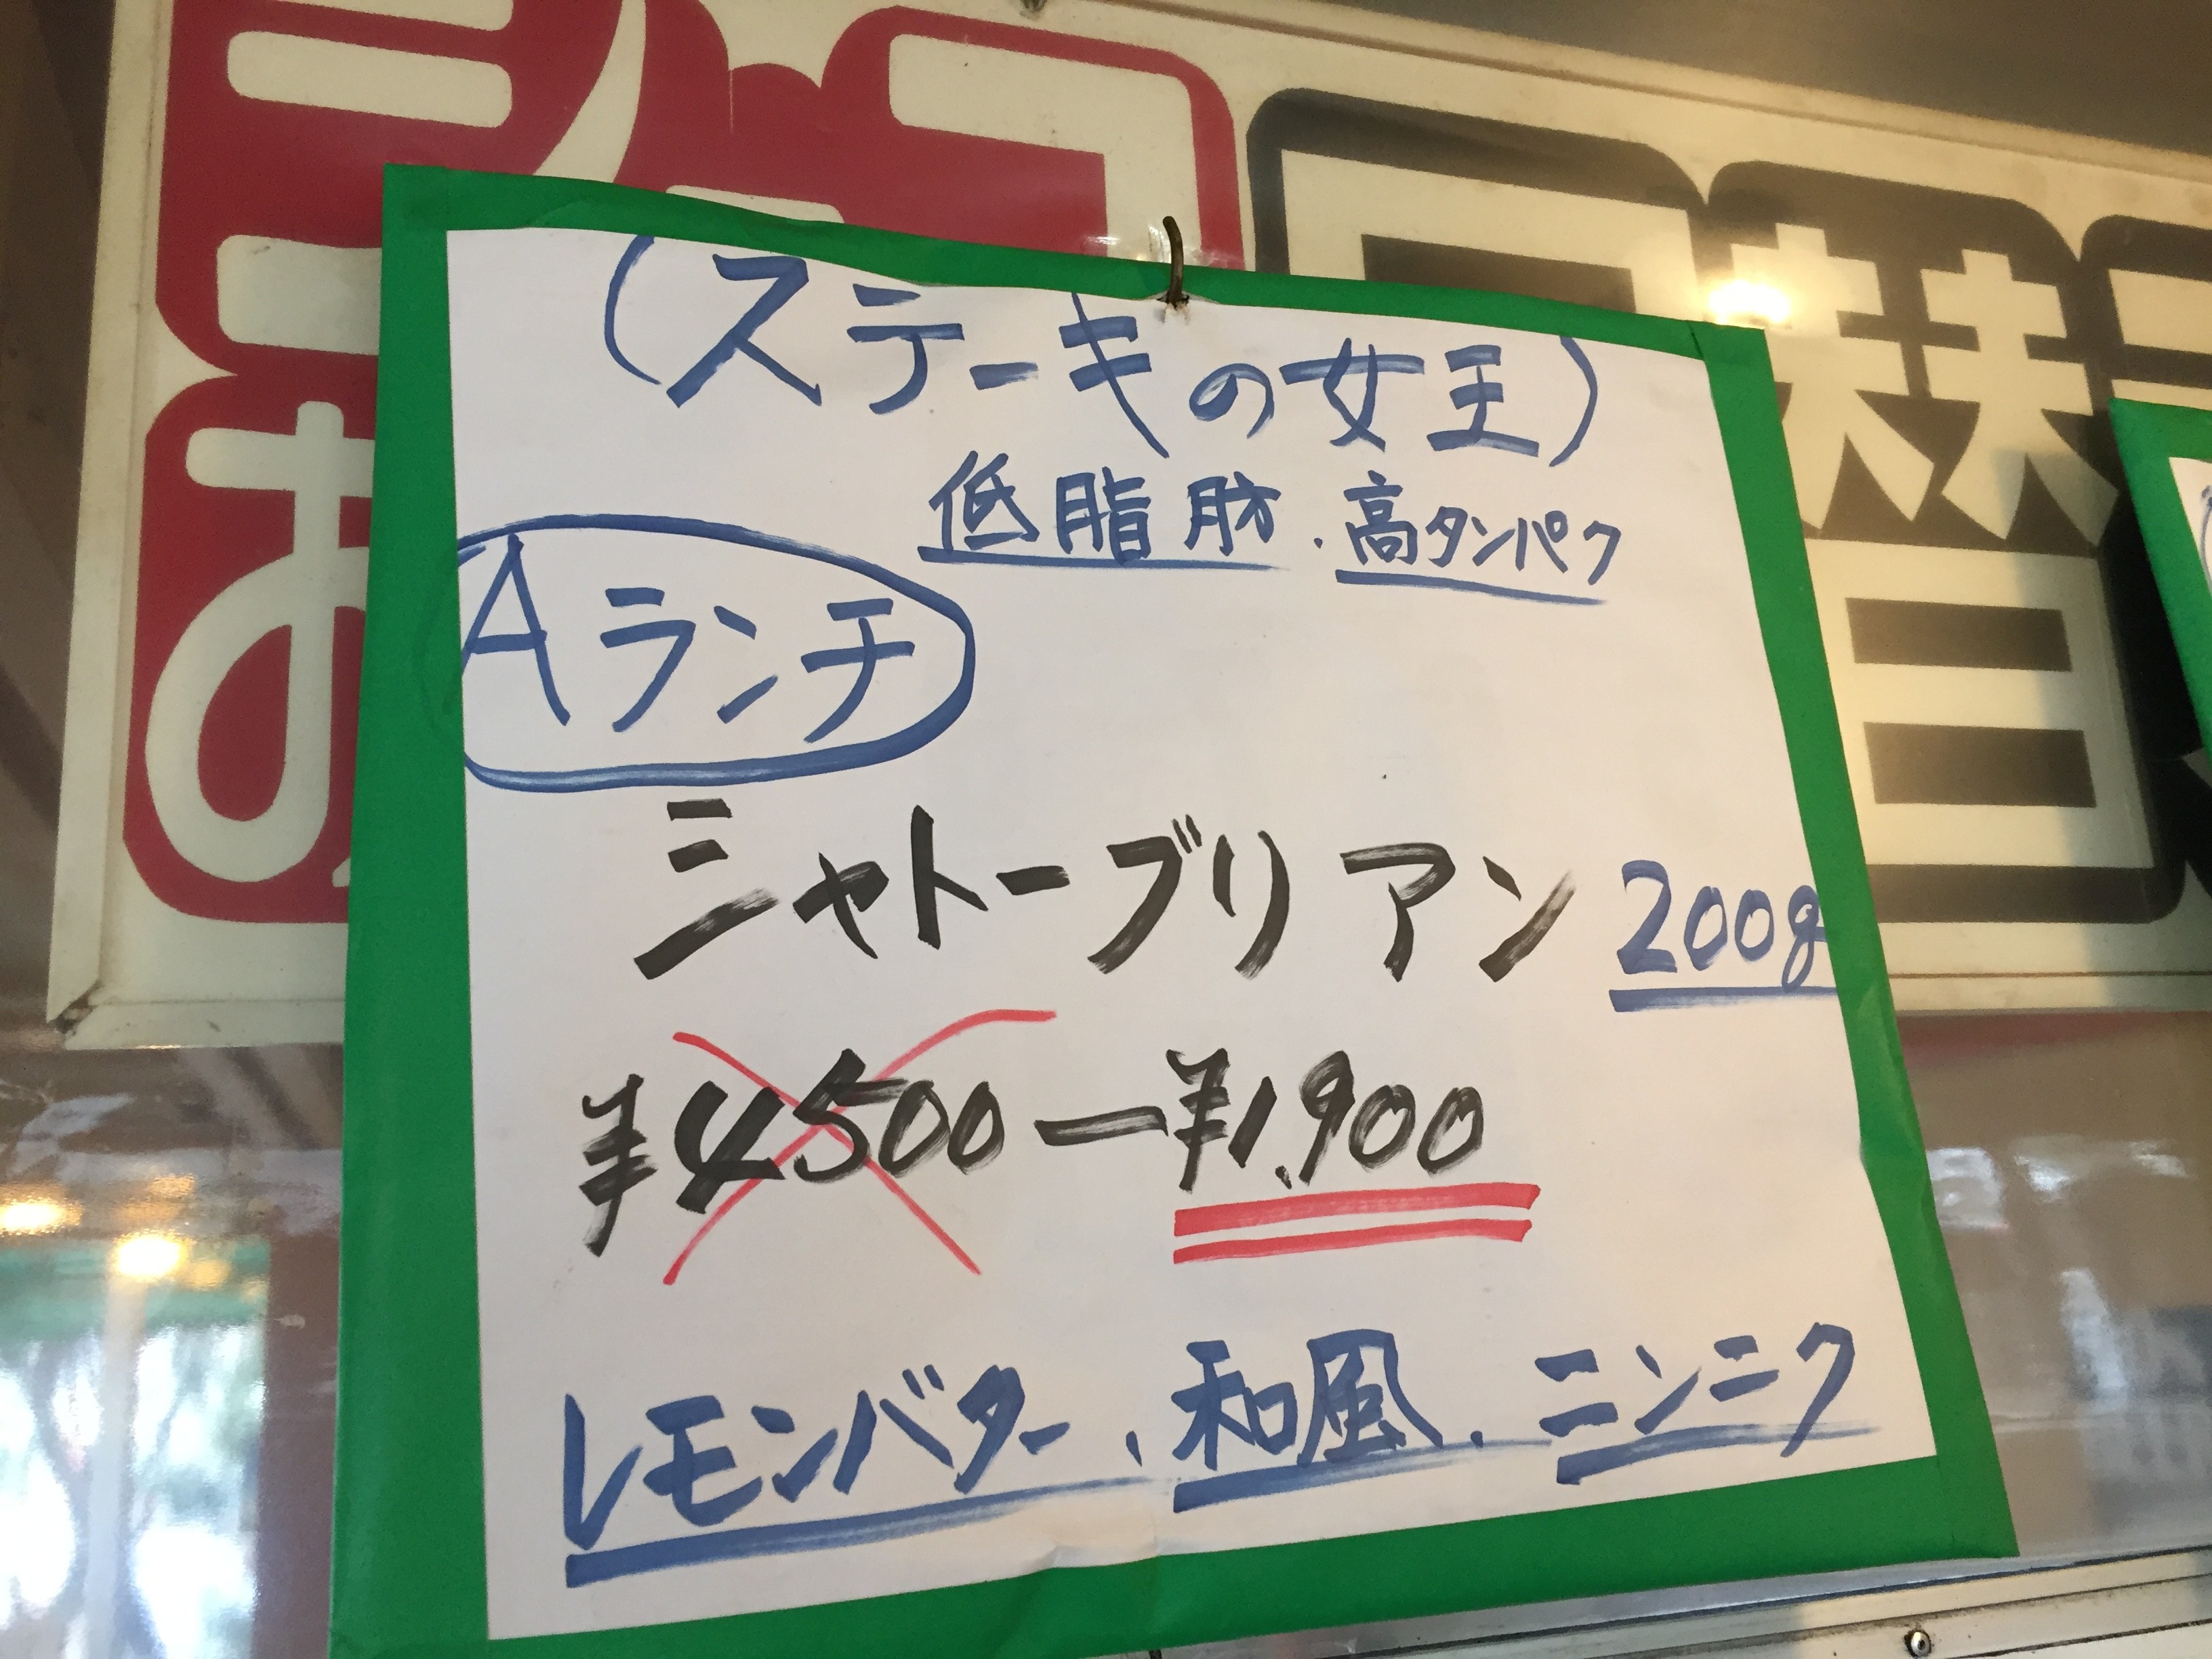 (ステーキの女王)
低脂肪.高タンパク
Aランチ
シャトーブリアン 200g
¥4500ー¥1,900
レモンバター、和風、ニンニク